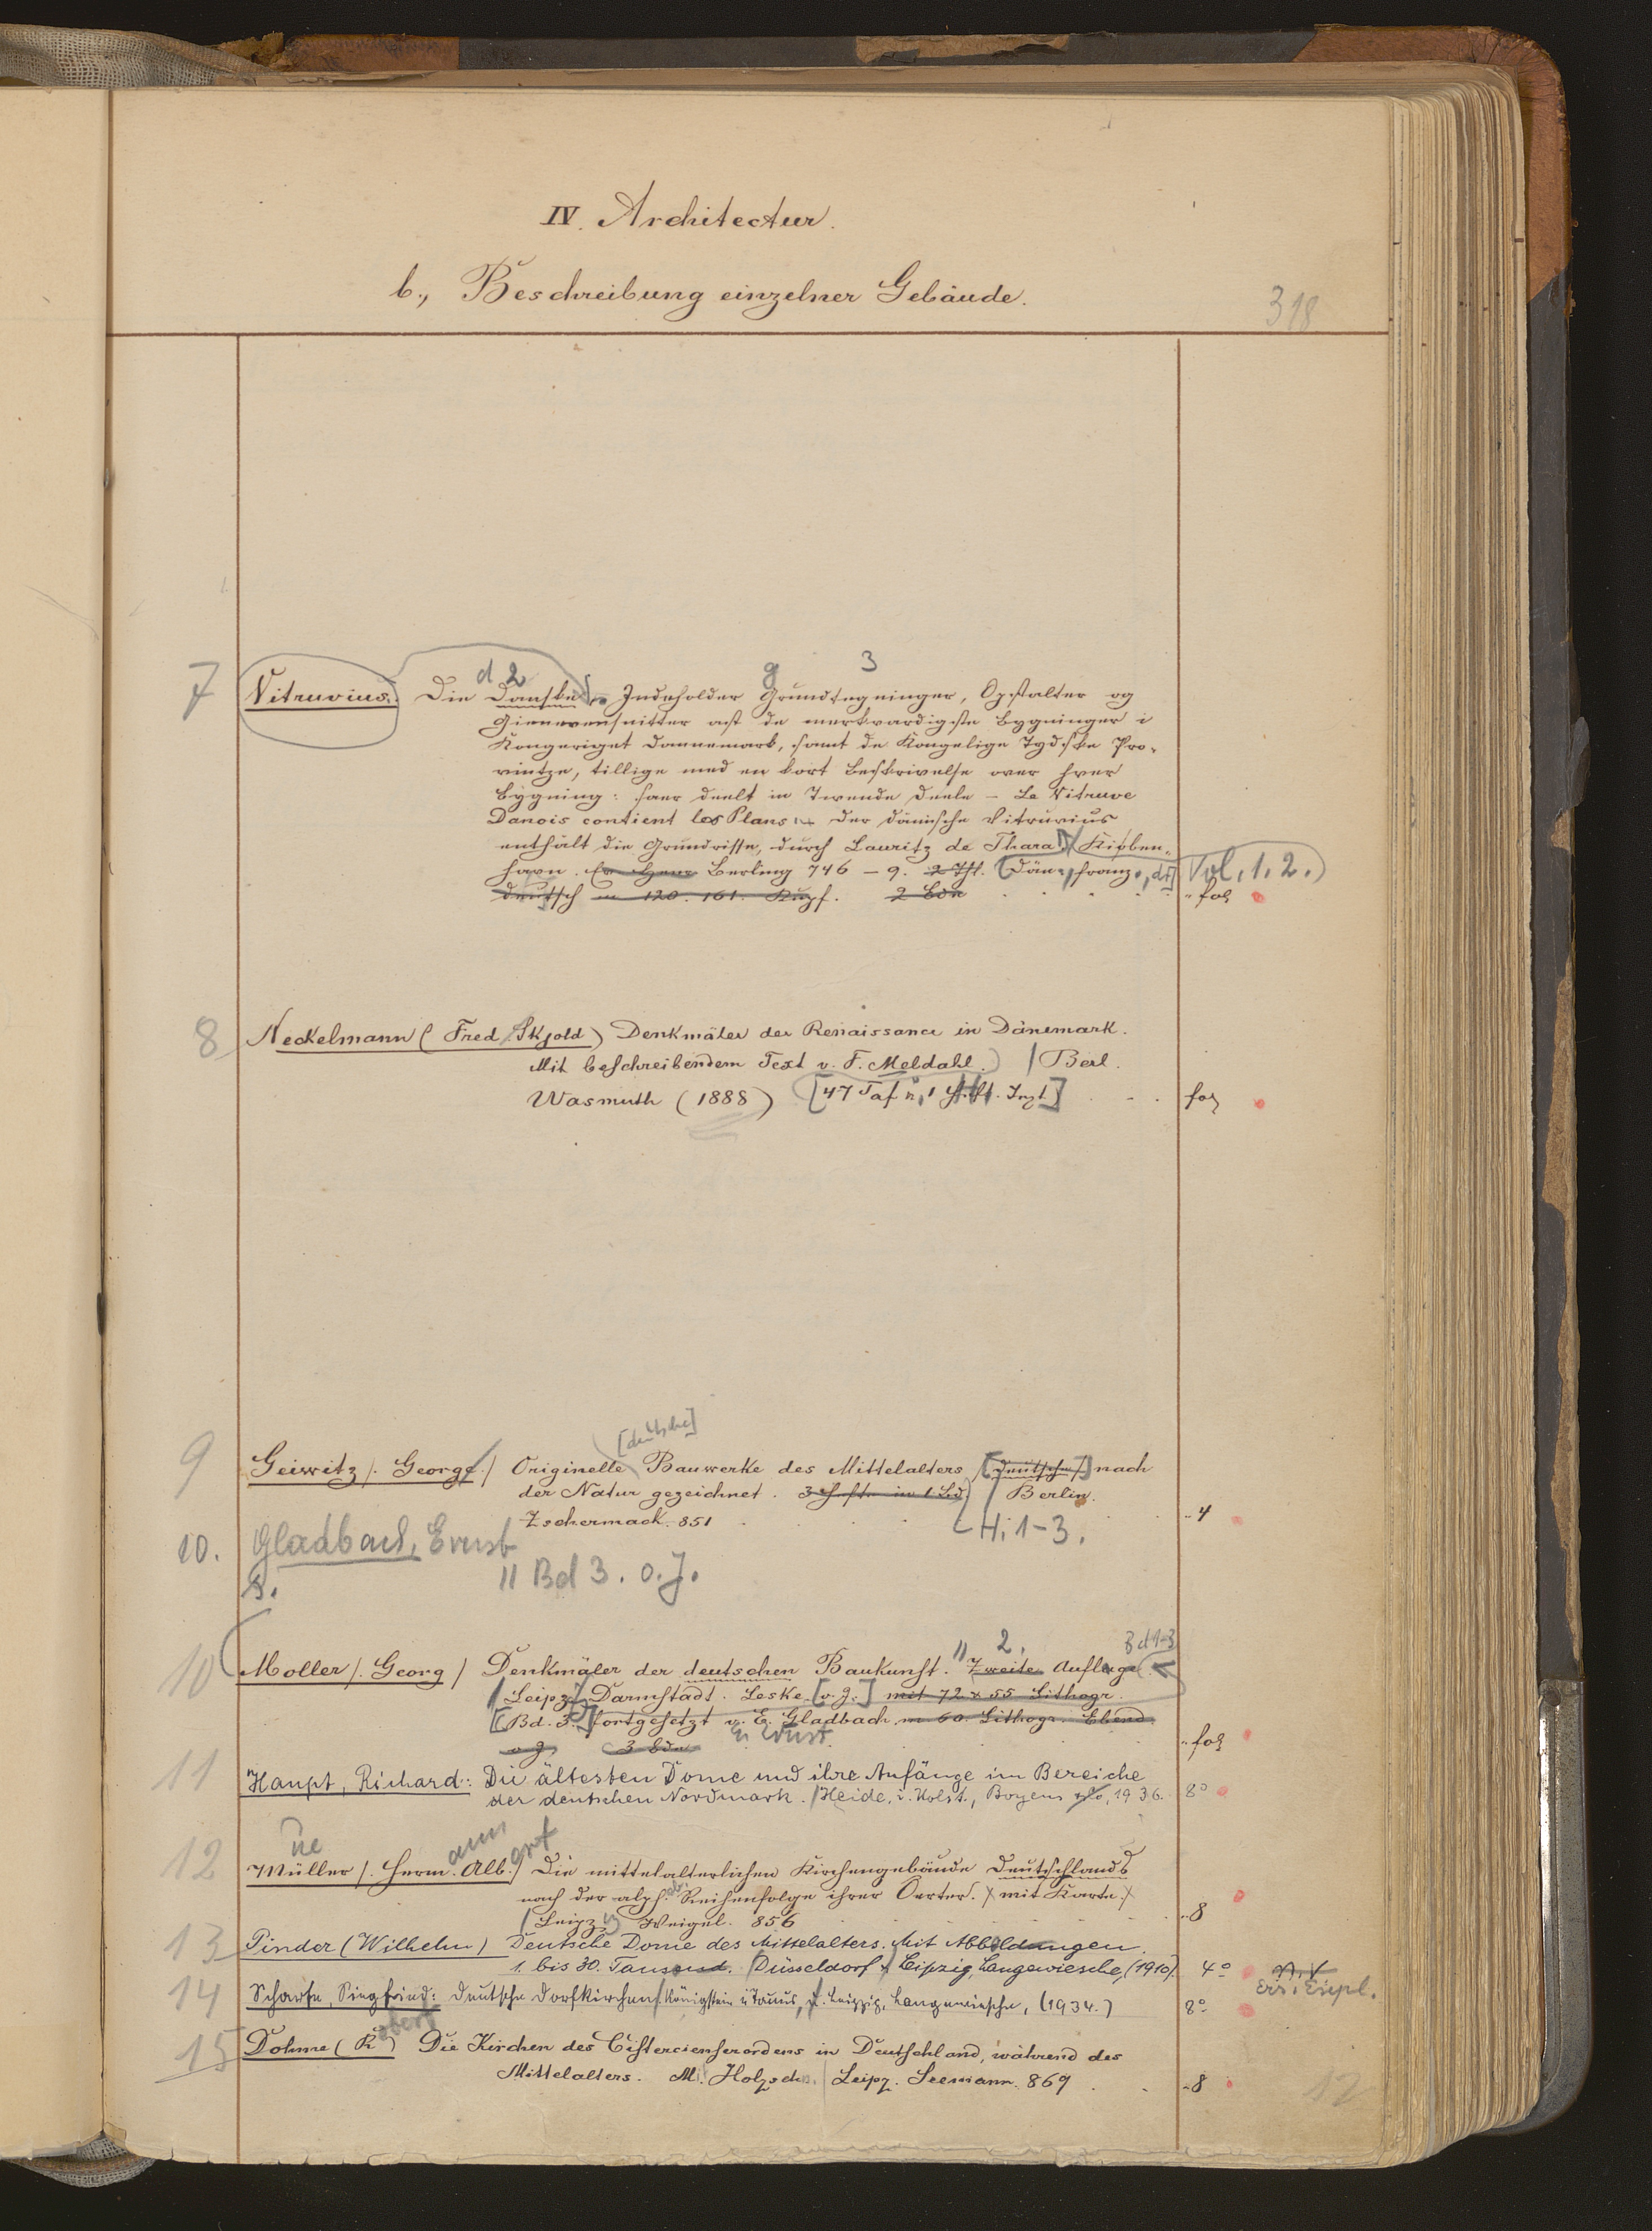 IV. Architectur.
b., Beschreibung einzelner Gebäude.
318
d 2 g 3
7 Vitruvius. Die Danske Indeholder Grundtegninger, Opstalter og
Giennemsnitter aff de merkvardigste Bygninger i
Kongeriget Dannemark, samt de Kongelige Tydske Pro-
vintze, tillige med en kort Beskrivelse over hver
Bygning: saer deelt in Tvende Deele - Le Vitruve
Danois contient les Plans Der dänische Vitruvius
enthält die Grundrisse, durch Lauritz de Thura Kioben-
havn. Berling 746 - 9. 2 Thl. [Dän., franz., dt] Vol. 1. 2.)
deutsch m 120. 161. Kupf. 2 Bde fol
8 Neckelmann (Fred. Skjold) Denkmäler der Renaissance in Dänemark.
Mit beschreibendem Text v. F. Meldahl.) Berl.
Wasmuth (1888) [47 Taf. 1 Text] fol
[deutsche]
9 Geiwitz /. George./ Originelle Bauwerke des Mittelalters [deutsche] nach
der Natur gezeichnet. 3 Hefte in 1 Bd Berlin.
Zschermack. 851 4
H. 1-3.
10. Gladbach, Ernst
s. " Bd 3. o. J.
" 2. Bd 1-3
10 Moller /. Georg / Denkmäler der deutschen Baukunst. Zweite Auflage
Leipz. Darmstadt. Leske. [o. J.] mit 72 x 55 Lithogr.
[Bd. 3.] fortgesetzt v. E. Gladbach m 60. Lithogr. Ebend
o J 3 Bde Ernst. fol
11 Haupt, Richard: Die ältesten Dome und ihre Anfänge im Bereiche
der deutschen Nordmark. Heide, i. Holst., Boyens & Co, 1936. 8°
ue ann ert
12 Müller /. Herm. Alb./ Die mittelalterlichen Kirchengebäude Deutschlands
nach der alph. Reihenfolge ihrer Oerter. mit Karte.
Leipz. Weigel. 856 8
13 Pinder (Wilhelm) Deutsche Dome des Mittelalters. Mit Abbildungen.
1. bis 30. Tausend. Düsseldorf & Leipzig, Langewiesche, (1910). 4°
Ers. Expl.
14 Scharfe, Siegfried: Deutsche Dorfkirchen Königstein i. Taunus, u. Leipzig, Langewiesche, (1934.) 8°
obert
15 Dohme (R) Die Kirchen des Cistercienserordens in Deutschland, während des
Mittelalters. M. Holzschn. Leipz. Seemann. 869 8
12